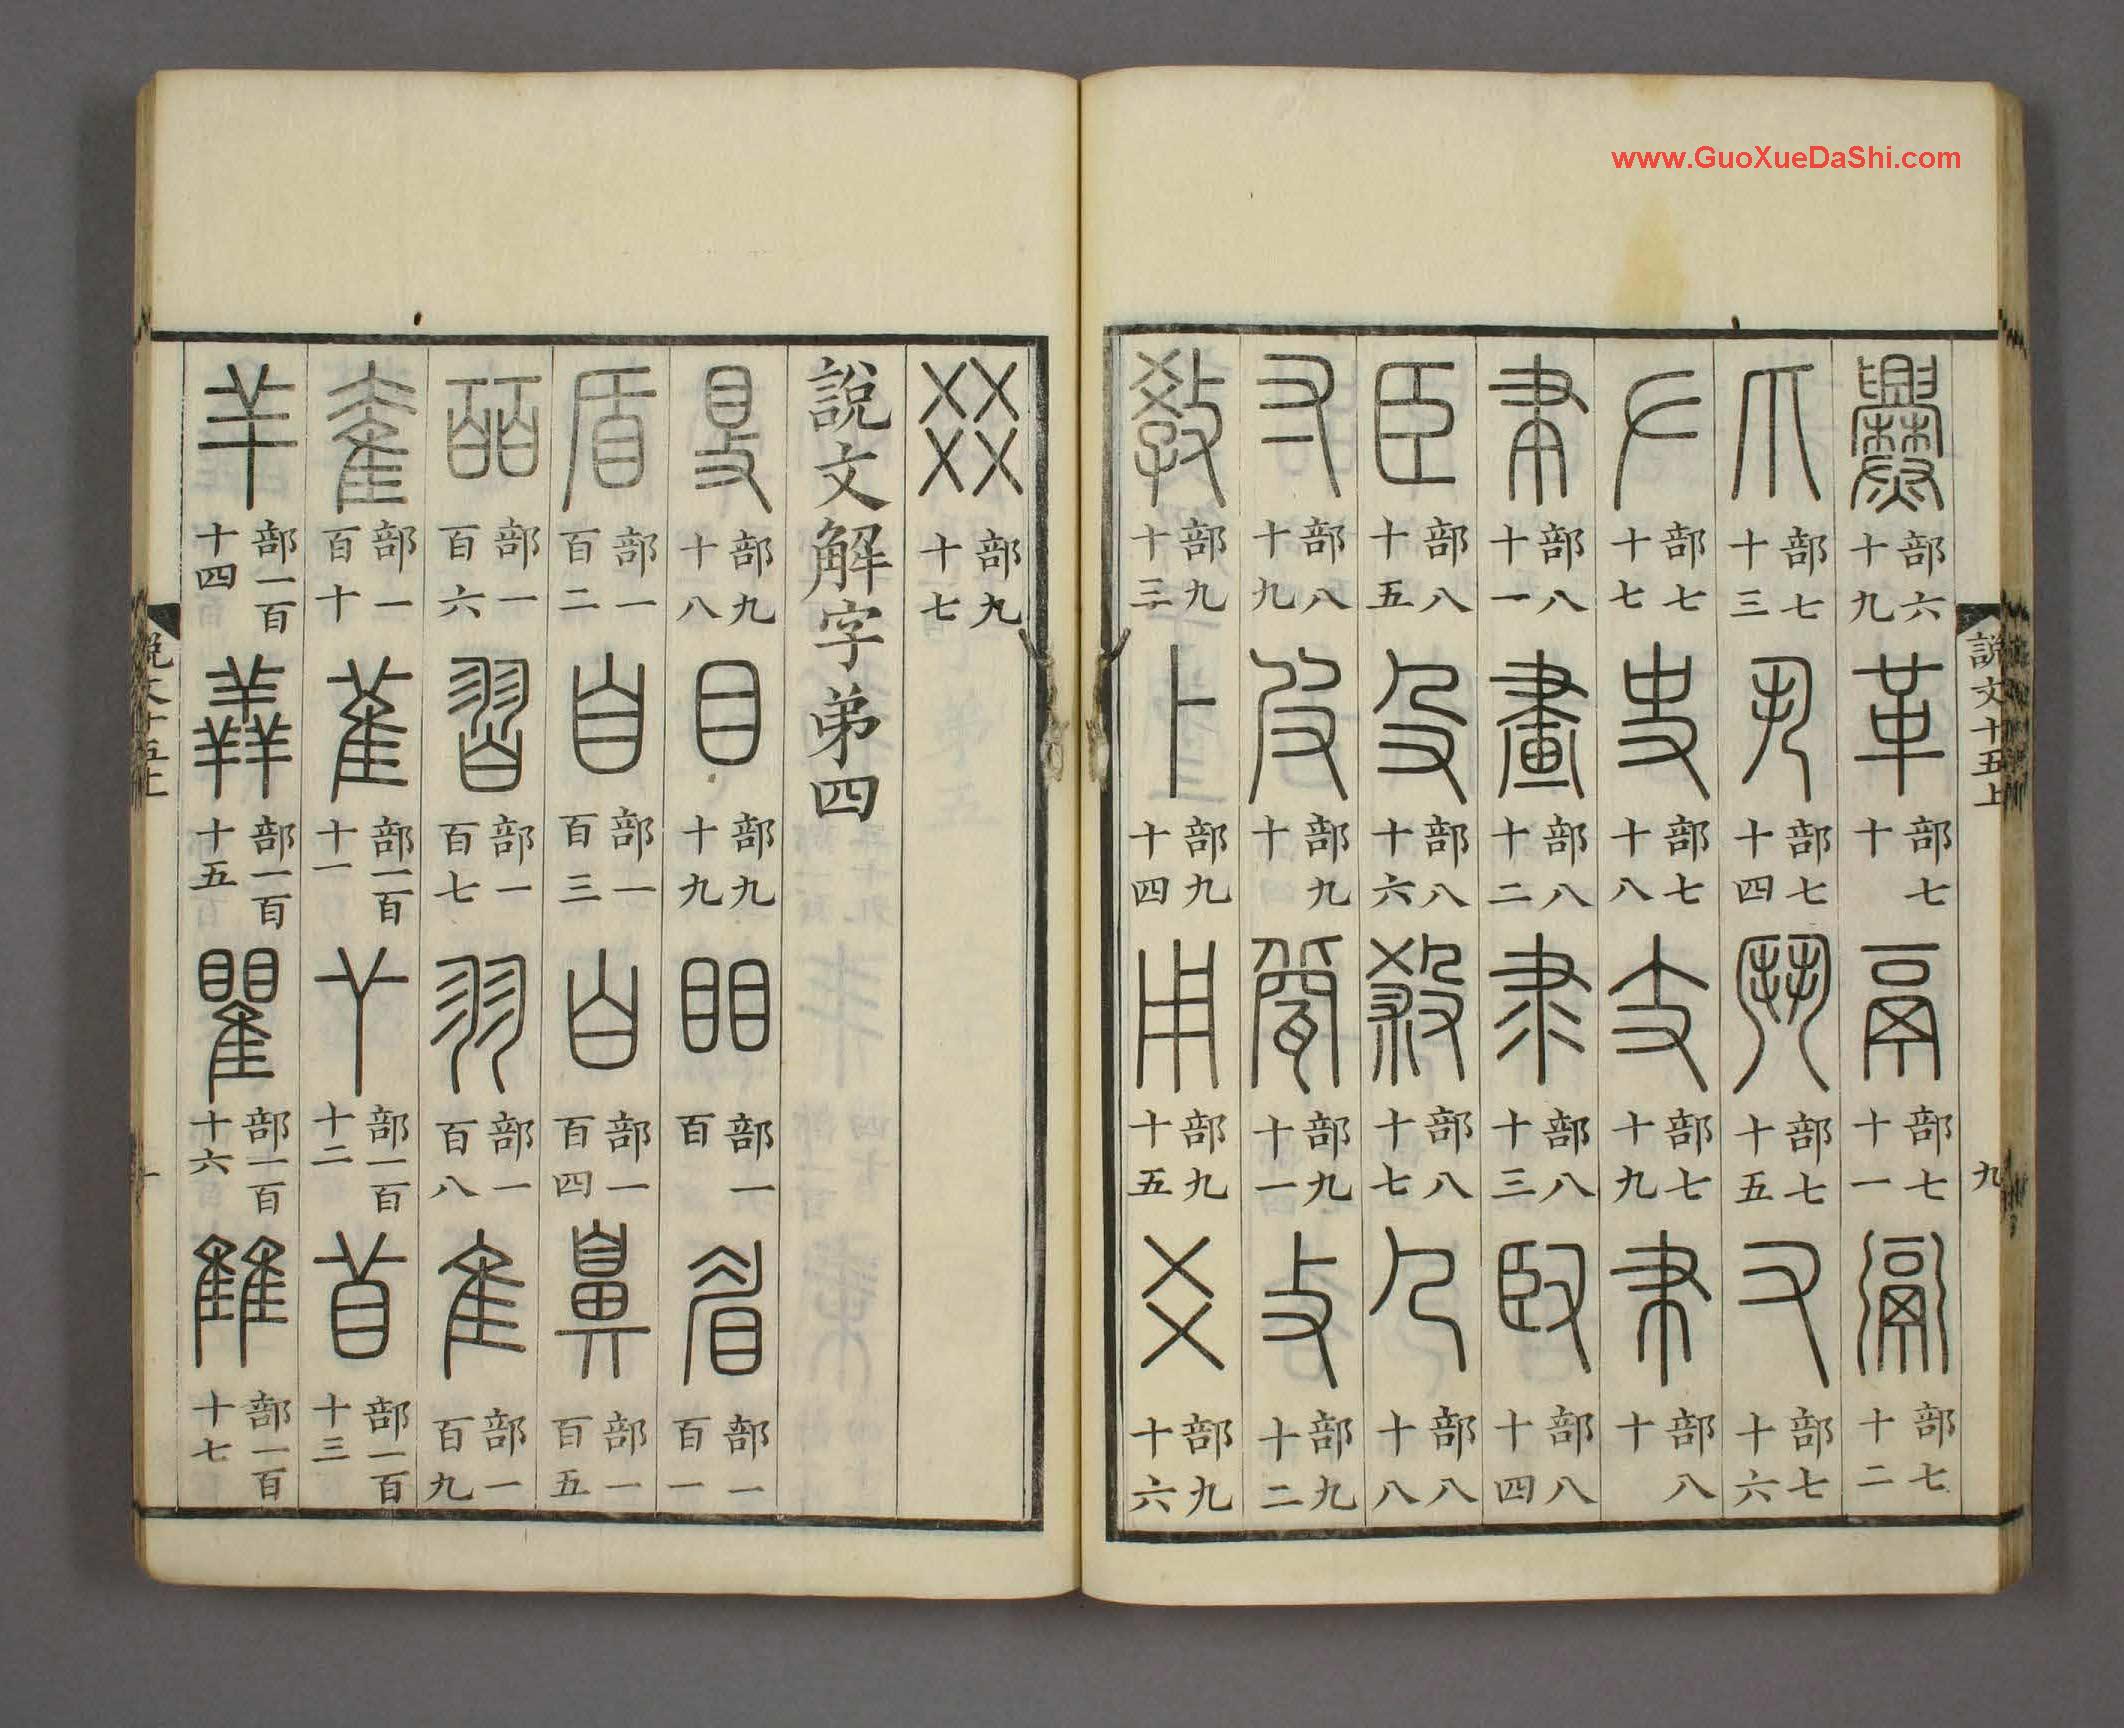 www.GuoXueDaShi.com
說文十五上 九
爨部六十九 革部七十 鬲部七十一 䰜部七十二
爪部七十三 丮部七十四 鬥部七十五 又部七十六
𠂇部七十七 史部七十八 支部七十九 𦘒部八十
聿部八十一 畫部八十二 隶部八十三 臤部八十四
臣部八十五 殳部八十六 殺部八十七 𠘧部八十八
寸部八十九 皮部九十 㼱部九十一 攴部九十二
教部九十三 卜部九十四 用部九十五 爻部九十六
㸚部九十七
說文解字弟四
𥄎部九十八 目部九十九 䀠部一百 眉部一百一
盾部一百二 自部一百三 白部一百四 鼻部一百五
皕部一百六 習部一百七 羽部一百八 隹部一百九
奞部一百十 雈部一百十一 𦫳部一百十二 苜部一百十三
羊部一百十四 羴部一百十五 瞿部一百十六 雔部一百十七
說文十五上